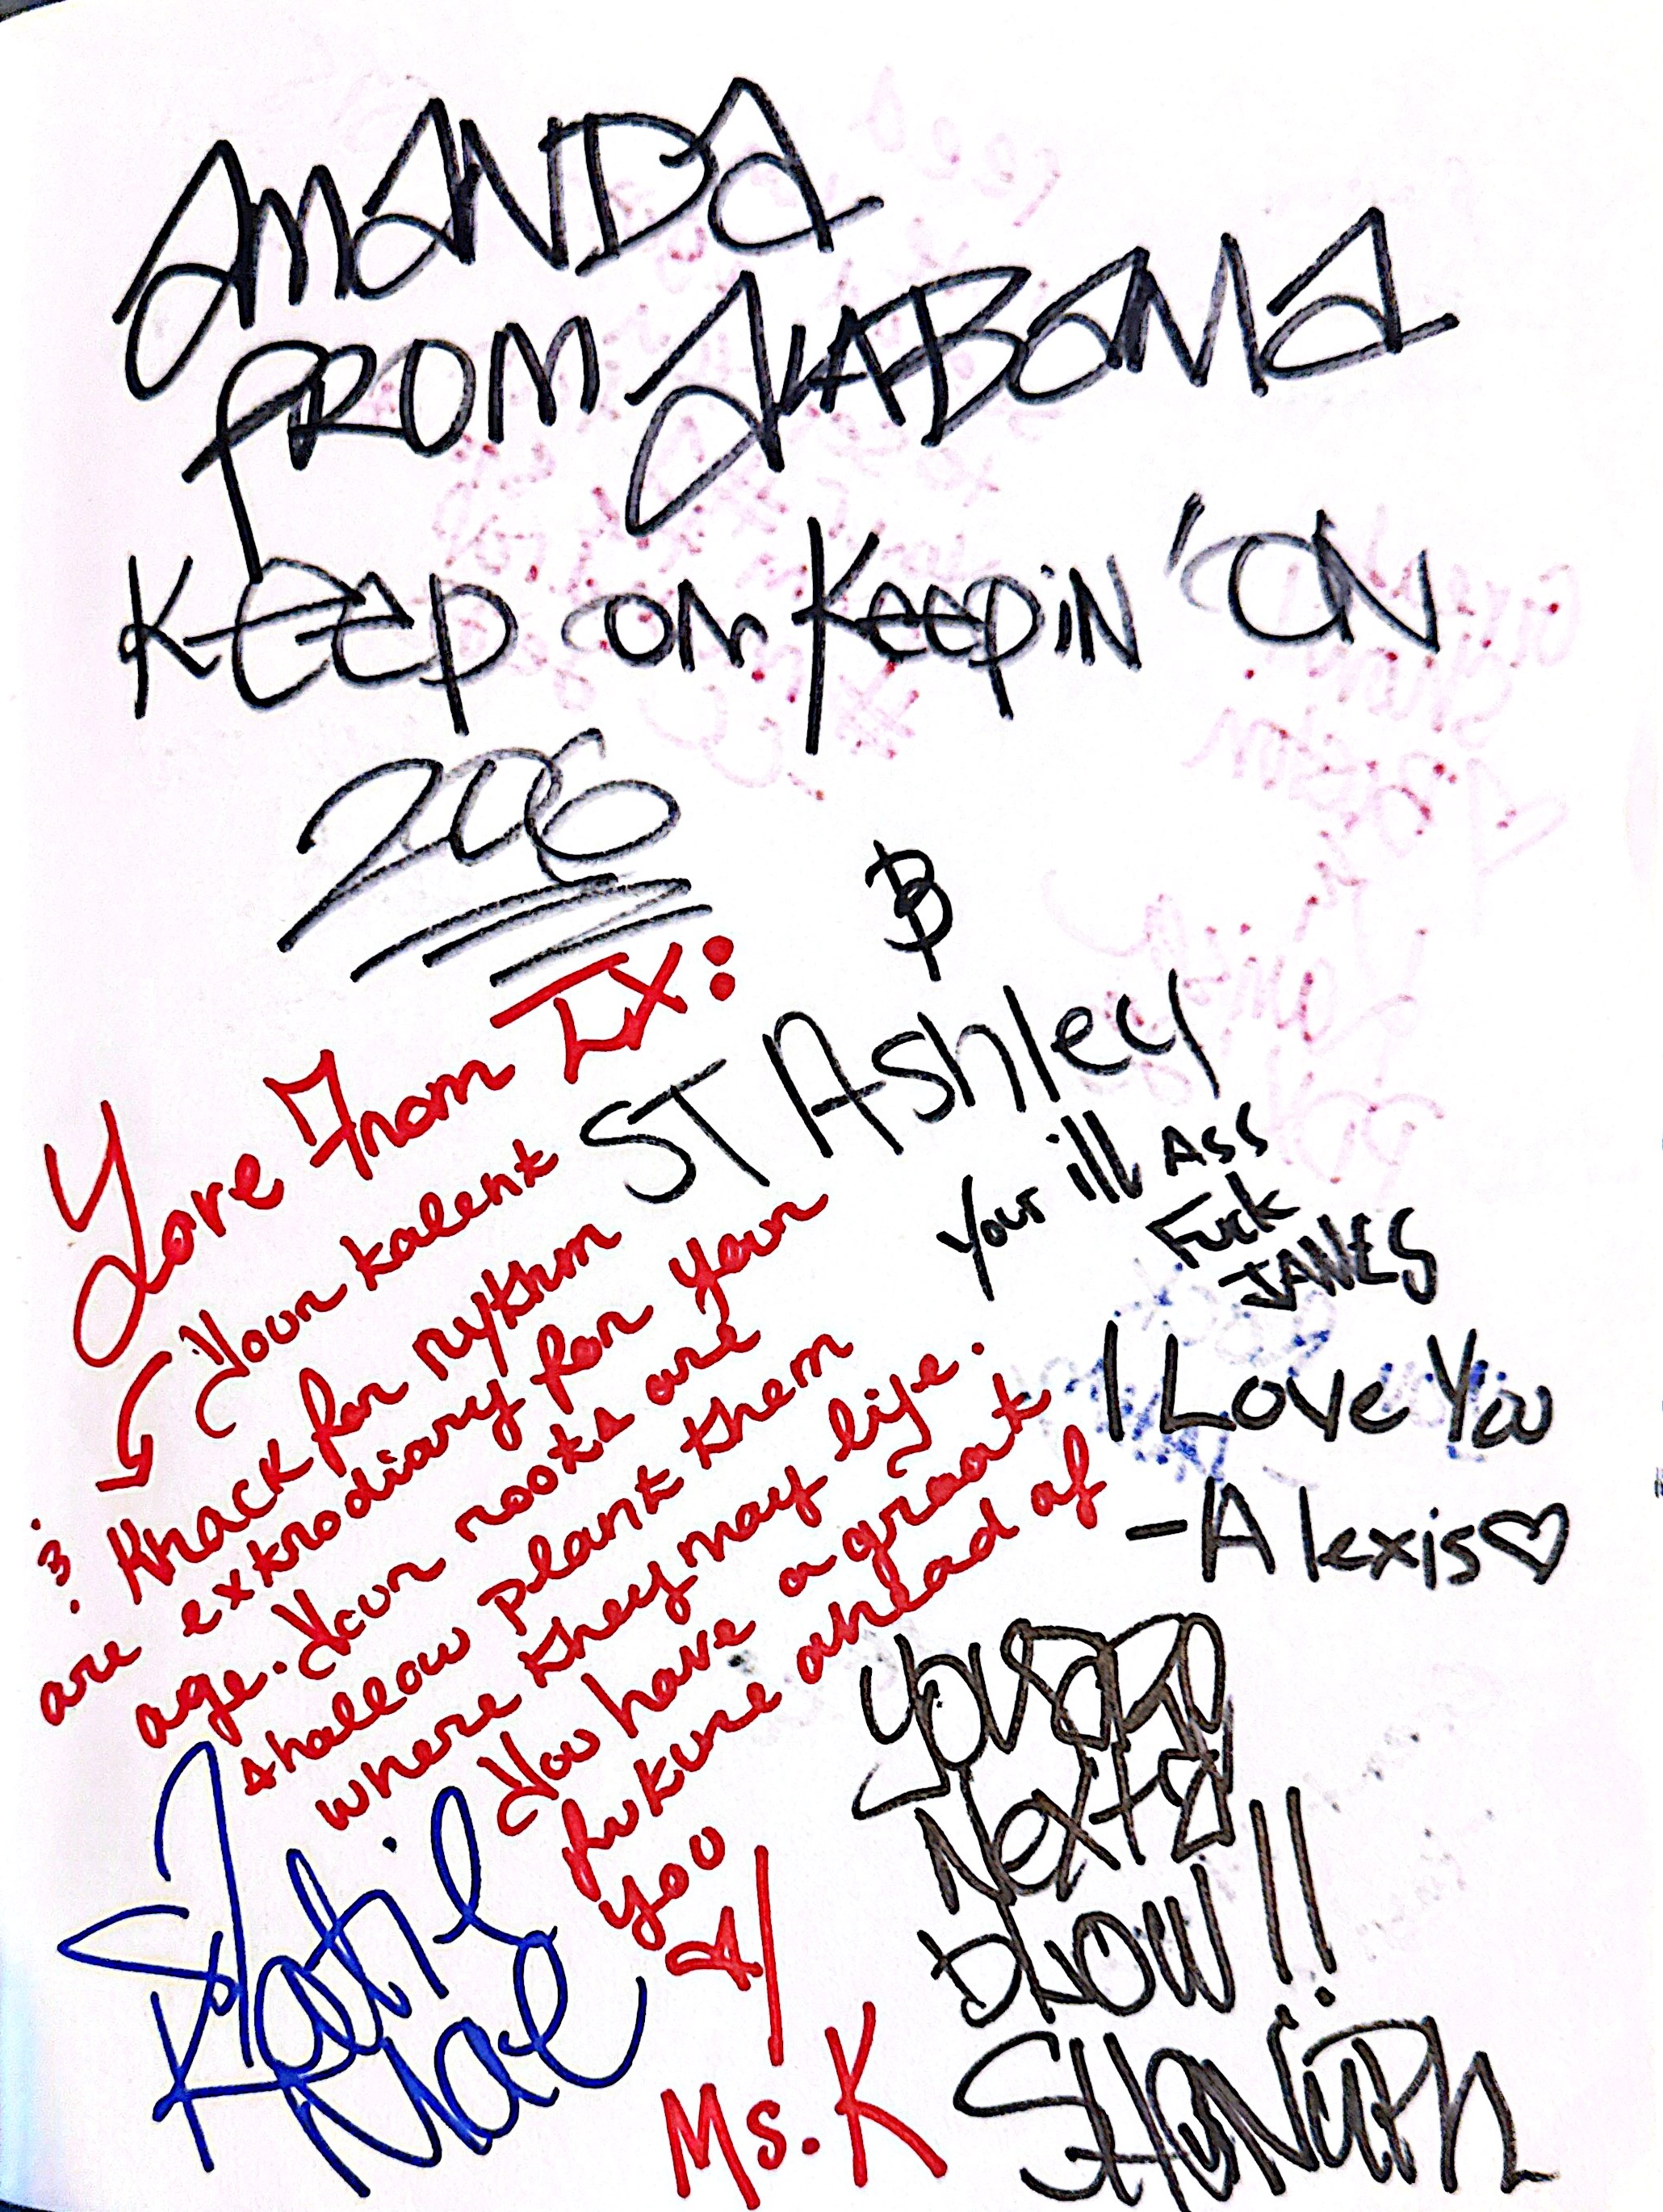 AMANDA
FROM ALABAMA
KEEP ON KeepiN 'ON
206
B
ST Ashley
Your ill Ass
Fuck
JANES
I Love You
-Alexis♡
Love From TX:
Your talent
& knack for rythm
are extrodiary for your
age. Your roots are
shallow plant them
where they may lije.
You have a great
future ahead of
you
Ms. K
Katie
Mae
Next